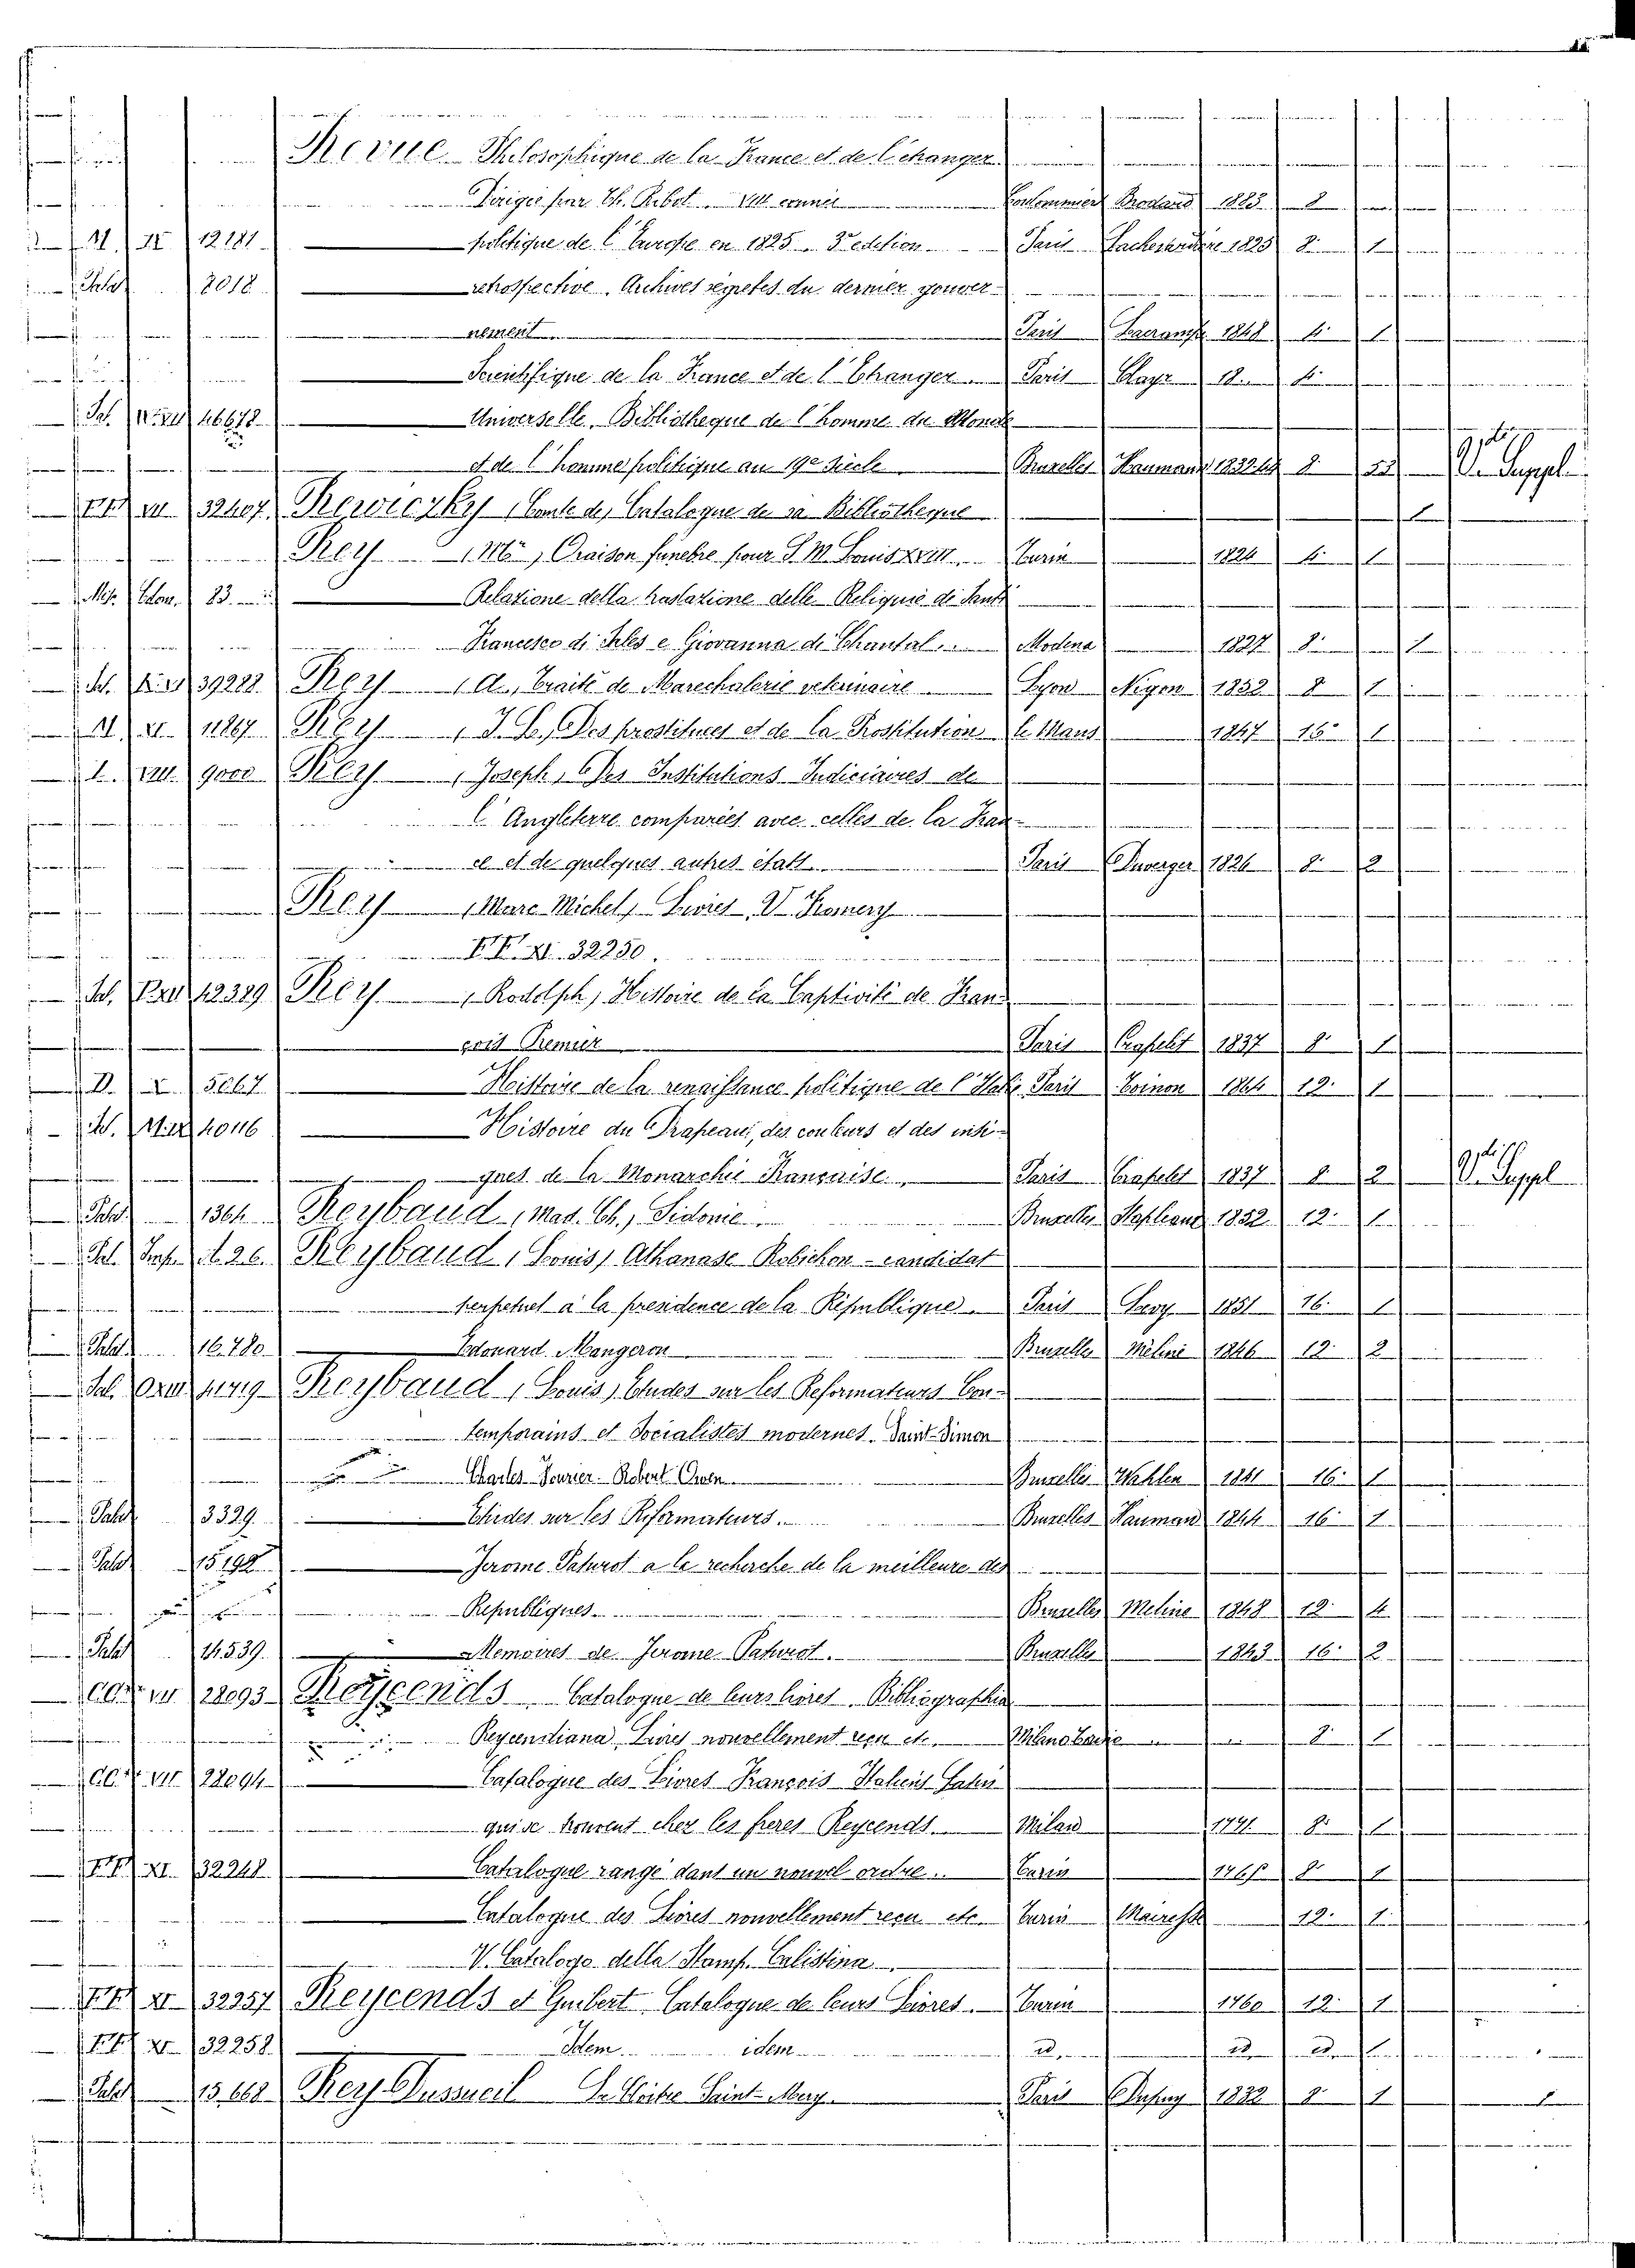 Revue Philosophique de la France et de l'étranger
Dirigée par Th. Ribot. VIII année Coulommiers Brodard 1883 8
M. IX 12181 politique de l'Europe en 1825. 3e edition Paris Lachevardiere 1825 8. 1
Palat 2018 retrospective. Archives secretes du dernier gouver-
nement Paris 1848 4. 1
Scientifique de la France et de l'Etranger. Paris Claye 18.. 4.
Sal. 46678 Universelle. Bibliotheque de l'homme du Monde
et de l'homme politique au 19e siècle Bruxelles Haumann 8. V. Suppl.
FF. VII 32407 Rewiczky (Conte de) Catalogue de sa Bibliotheque 1
Rey (Mr) Oraison funebre pour S. M. Louis XVIII. Turin 1824 4. 1
Mis. Edon. 23. Relazione della traslazione delle Reliquie di Santi
Francesco di Sales e Giovanna di Chantal. Modena 1827 8. 1
39288 Rey (A.) Traité de Marechalerie veterinaire Lyon Nigon 1852 8 1
M. XI. 11867 Rey (J. L.) Des prostituees et de la Prostitution le Mans 1847 16. 1
I. VIII. 9000 Rey (Joseph) Des Institutions Judiciaires de
l'Angleterre comparées avec celles de la Fran-
ce et de quelques autres états. Paris Duverger 1826 8. 2
Rey (Marc Michel) Livres V. Fromery
FF. XI. 32250.
Sal. 42389 Rey (Rodolph) Histoire de la Captivité de Fran-
çois Premier Paris Crapelet 1837 8. 1
D. X. 5067 Histoire de la renaissance politique de l'Italie Paris Voinon 1864 12. 1
40116 Histoire du Drapeau, des couleurs et des insi-
gnes de la Monarchie Française. Paris Crapelet 1837 8 2 V. Suppl
Palat 1364 Reybaud (Mad. Ch.) Sidonie. Bruxelles 1852 12. 1
Sal. A. 26. Reybaud (Louis) Athanase Robichon - candidat
perpetuel à la presidence de la République. Paris Levy 1851 16. 1
Palat. 16.780 Edouard Mongeron Bruxelles Méline 1846 12. 2
Sal. Reybaud (Louis) Etudes sur les Reformateurs Con-
temporains et Socialistes modernes. Saint-Simon
Charles Fourier - Robert Owen Bruxelles Wahlen 1841 16. 1
Palat 3329. Etudes sur les Réformateurs. Bruxelles Hauman 1844 16 1
Palat 15192 Jerome Paturot a la recherche de la meilleure des
Republiques. Bruxelles Meline 1848 12 4
Palat 14.539. Memoires de Jerome Paturot. Bruxelles 1843. 16. 2
CC. VII 28093 Reycends. Catalogue de leurs livres. Bibliographia
Reycendiana. Livres nouvellement reçu etc. Milano 8. 1
CC. VII 28094 Catalogue des Livres François Italiens Latins
qui se trouvent chez les freres Reycends. Milan 8. 1
FF. XI. 32248 Catalogue rangé dans un nouvel ordre. Turin 8. 1
Catalogue des Livres nouvellement reçu etc. Turin Mairesse 12. 1.
V. Catalogo della Stamp. Calistina.
FF. XI 32257 Reycends et Guibert Catalogue de leurs Livres. Turin 1760 12. 1
FF. XI 32258. Idem idem id. id. id. 1
Palat Rey-Dussueil Le Cloitre Saint-Mery Paris Dupuy 1832 8. 1